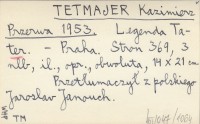 TETMAJER Kazimierz
Przerwa 1953. Legenda Ta-
ter. - Praha. Stron 369, 3
nlb, il., opr., obwoluta, 14 x 21 cm
Przetłumaczył z polskiego
Jaroslav Janouch.
TM